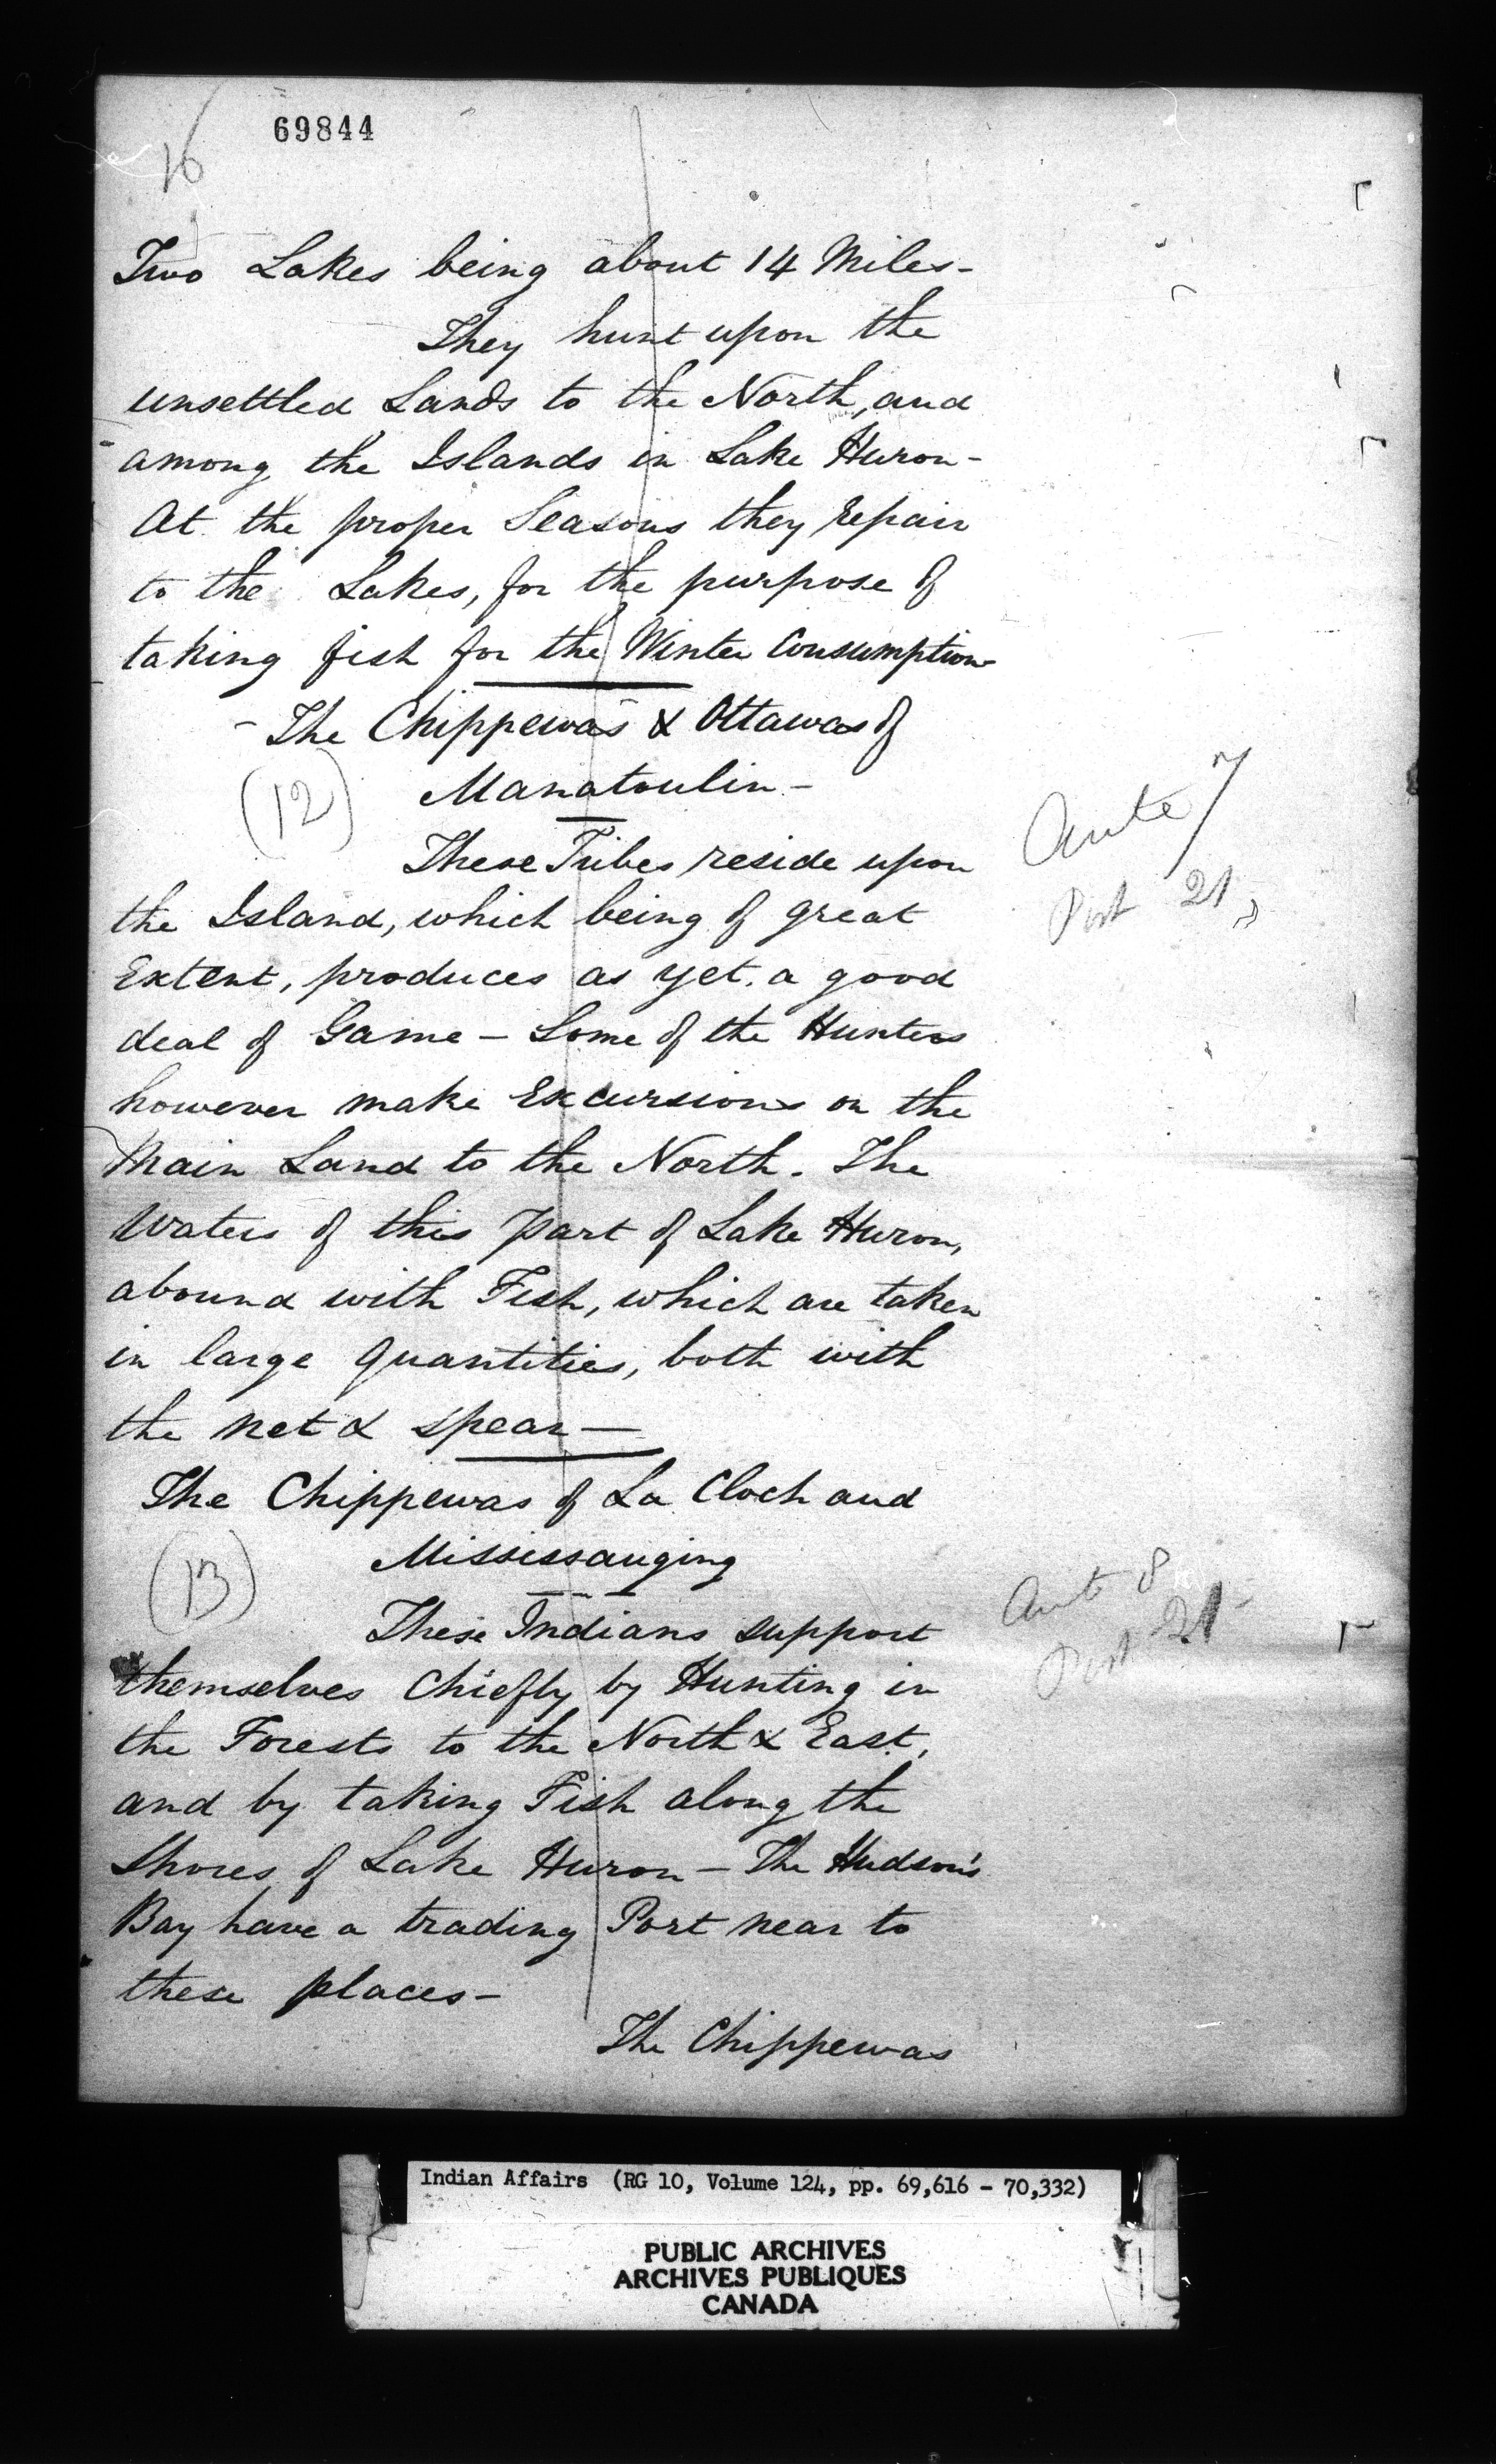 69844
16
Two Lakes being about 14 Miles-
They hunt upon the
unsettled Lands to the North, and
among the Islands in Lake Huron-
At the proper Seasons they repair
to the Lakes, for the purpose of
taking fish for the Winter Consumption-
- The Chippewas & Ottawas of
(12) Manatoulin-
Ante 7
Post 21
These Tribes reside upon
the Island, which being of great
Extent, produces as yet, a good
deal of Game - Some of the Hunters
however make Excursions on the
Main Land to the North. The
Waters of this part of Lake Huron,
abound with Fish, which are taken
in large Quantities, both with
the net & spear—
The Chippewas of La Cloch and
(13) Mississauging
Ante 8
Post 21
These Indians support
themselves Chiefly by Hunting in
the Forests to the North & East,
and by taking Fish along the
Shores of Lake Huron - The Hudson's
Bay have a trading Post near to
these places-
The Chippewas
Indian Affairs (RG 10, Volume 124, pp. 69,616 - 70,332)
PUBLIC ARCHIVES
ARCHIVES PUBLIQUES
CANADA